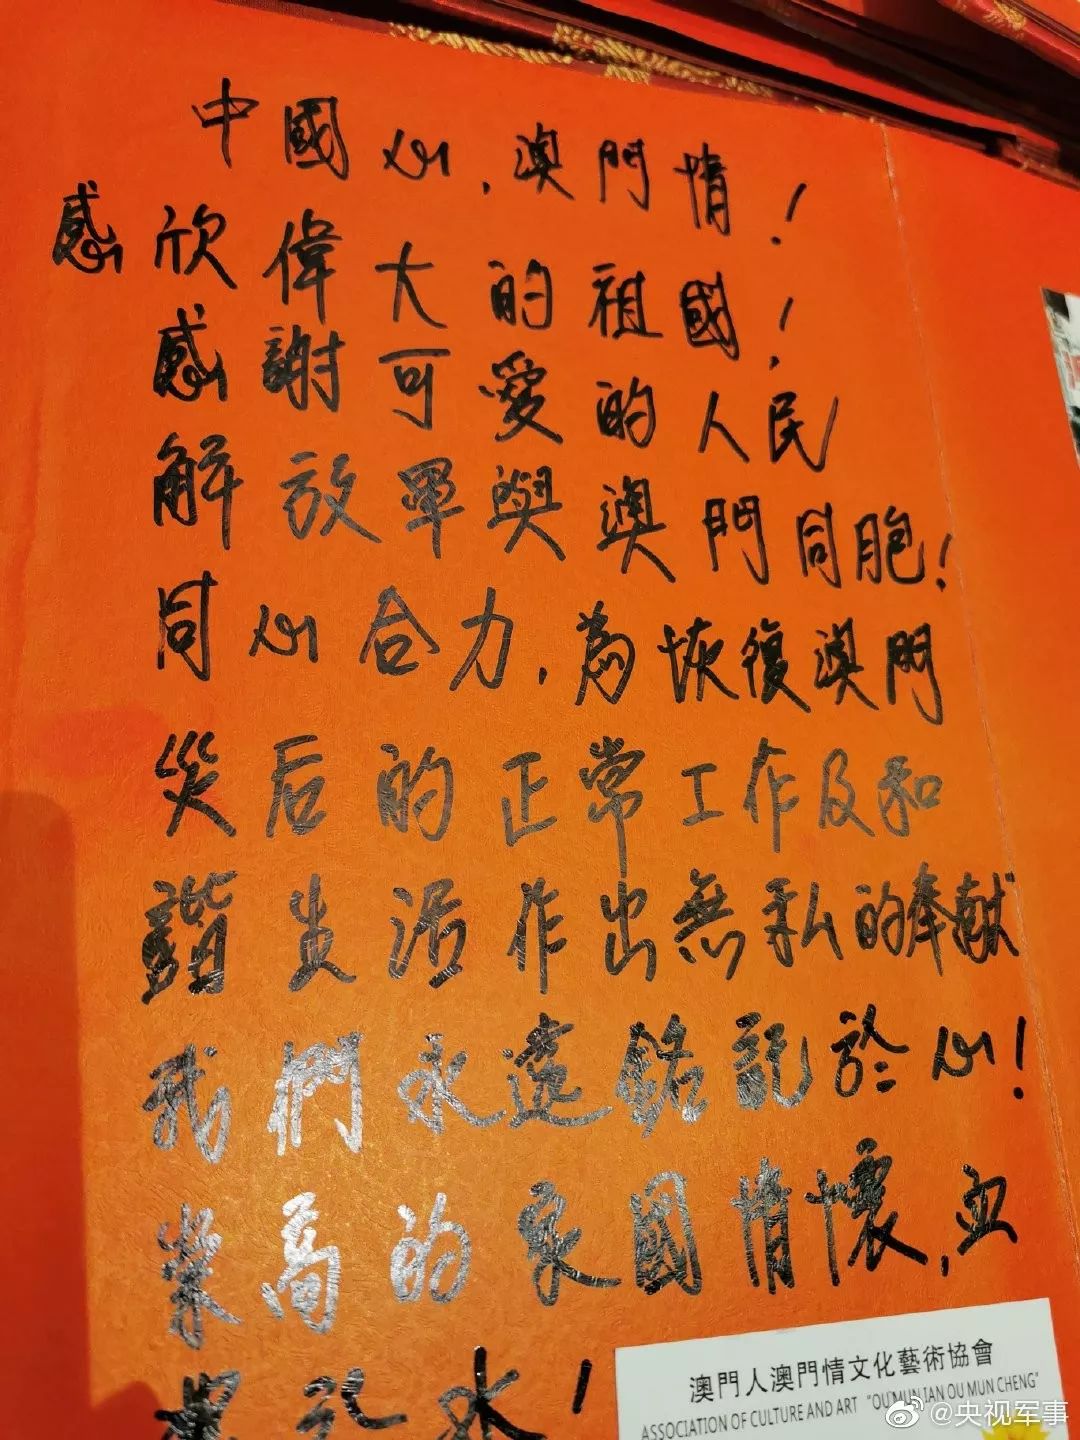 中國心，澳門情！
感欣偉大的祖國！
感謝可愛的人民
解放軍與澳門同胞！
同心合力，為恢復澳門
災后的正常工作及和
諧生活作出無私的奉献
我們永遠銘記於心！
崇高的家國情懷，血
與汗水！
澳門人澳門情文化藝術協會
ASSOCIATION OF CULTURE AND ART "OU MUN IAN OU MUN CHENG"
@央视军事